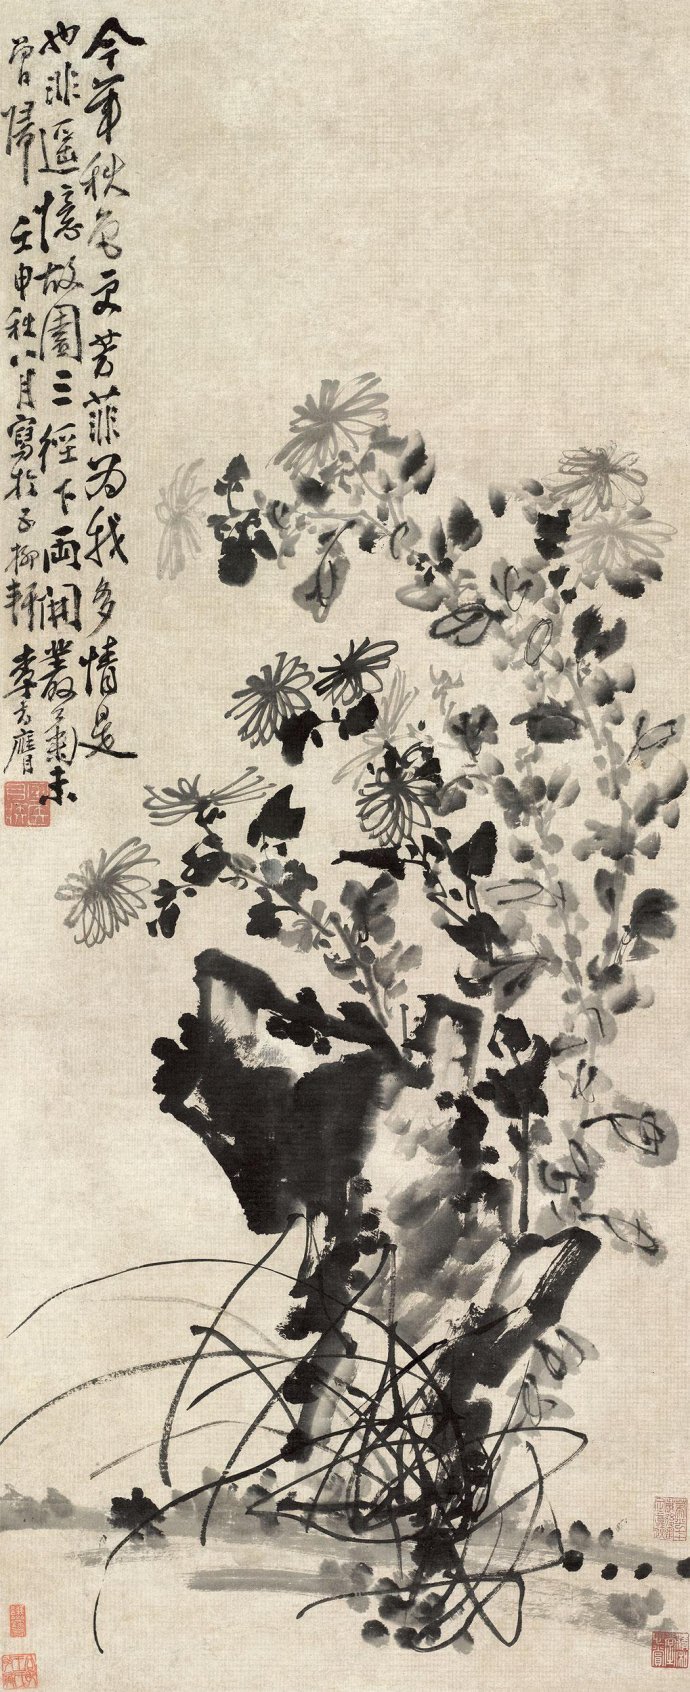 今年秋色更芳菲為我多情是
也非遙憶故園三徑下兩開叢菊未
曾歸 壬申秋八月寫於柳軒李方膺